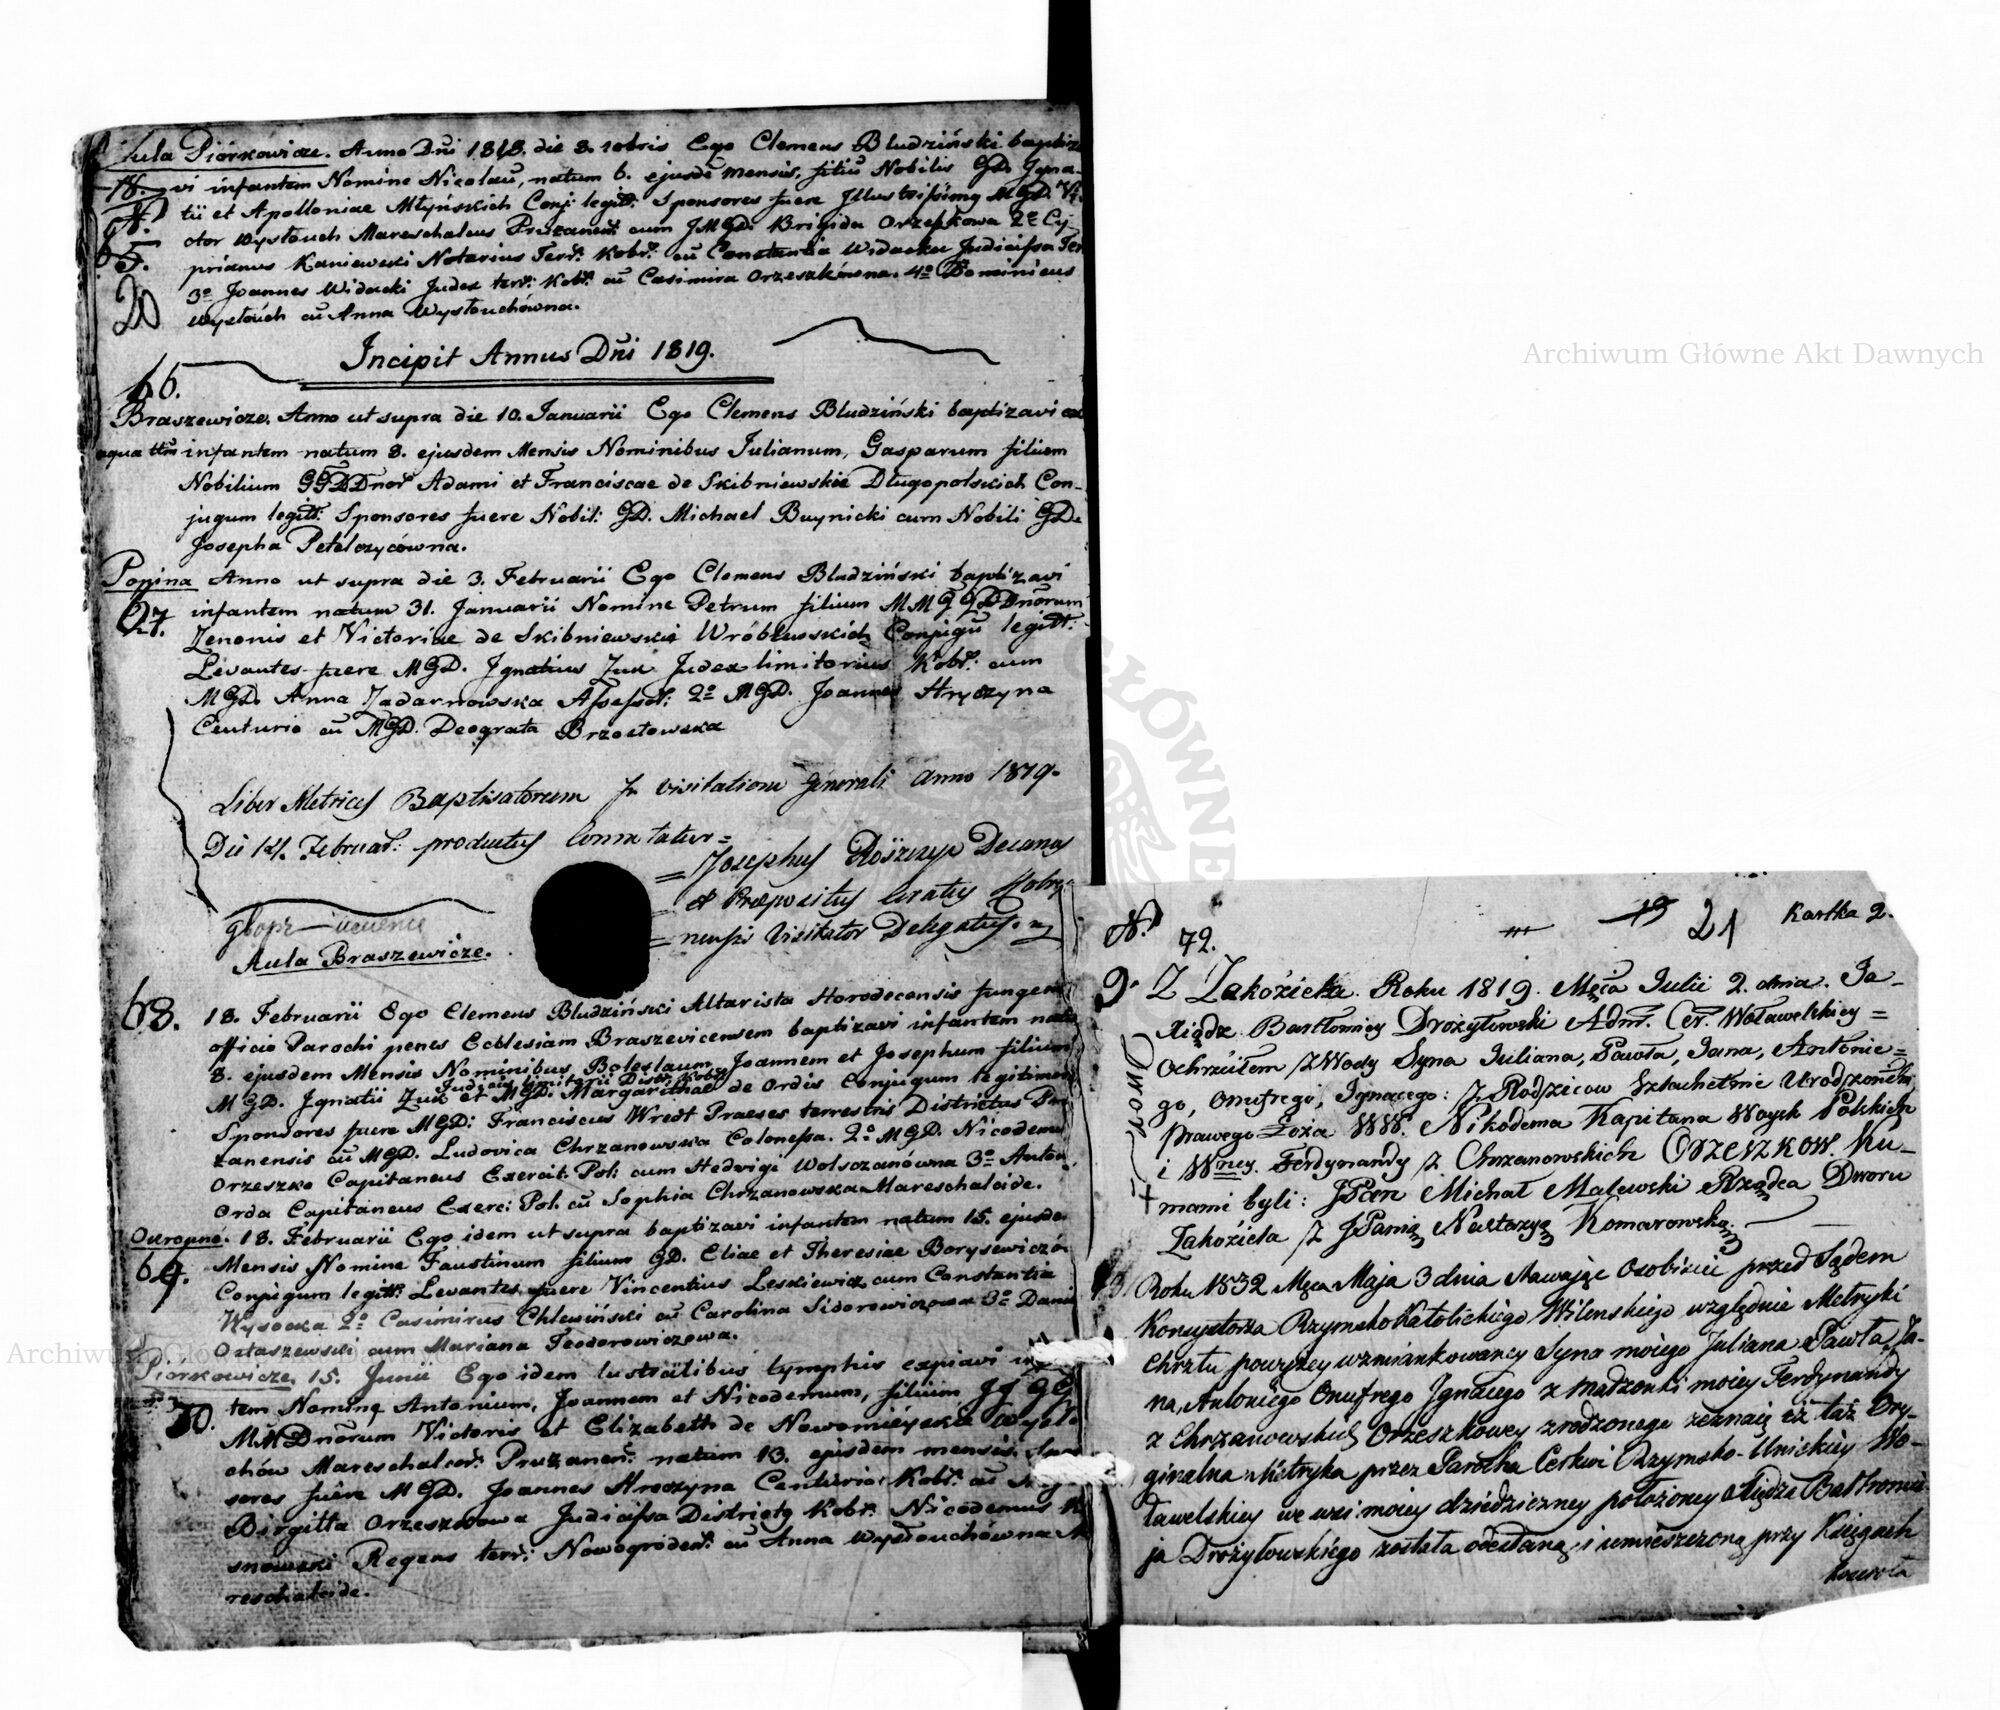 Aula Piórkowicze. Anno Dni 1818. die 8. 10bris Ego Clemens Bludziński baptiza
vi infantem Nomine Nicolaū, natum 6. ejusdē mensis, filiū Nobilis GD. Igna-
tii et Apolloniae Młyńskich Conj: legitt: Sponsores fuere Illustrissimq MGD. Vi
ctor Wysłouch Mareschalcus Pruzanen: cum JMGD. Brigida Orzeszkowa 2º Cy
prianus Kaniewski Notarius Terr: Kobr: cū Constantia Widacka Judicissa Ter
3º Joannes Widacki Judex terr: Kobr: cū Casimira Orzeszkówna. 4º Dominicus
Wysłouch cū Anna Wysłouchówna.
18.
65.
20
Incipit Annus Dni 1819.
66.
Braszewicze. Anno ut supra die 10. Januarii Ego Clemens Bludziński baptizavi ex
aqua ttm infantem natum 8. ejusdem Mensis Nominibus Julianum, Gasparum filium
Nobilium GGDDnor Adami et Franciscae de Skibniewskie Długopolskich Con-
jugum legitt: Sponsores fuere Nobil: GD. Michael Buynicki cum Nobili GD.
Josepha Petelczycówna.
Popina Anno ut supra die 3. Februarii Ego Clemens Bludziński baptizavi
67. infantem natum 31. Januarii Nomine Petrum filium MMGGDDnorum
Zenonis et Victoriae de Skibniewskie Wróblewskich Conjugū legitt:
Levantes fuere MGD. Ignatius Zuk Judex limitorius Kobr: cum
MGD. Anna Zadarnowska Assessor: 2º MGD. Joannes Hryczyna
Centurio cū MGD. Deograta Brzostowska
Liber Metrices Baptisatorum In visitatione Generali Anno 1819.
Die 14. Februar: productus connotatur=
=Josephus Rószczyc Decanus
et Praepositus Curatus Kobry
nensis Visitator Delegatus.
Aula Braszewicze.
68. 18. Februarii Ego Clemens Bludziński Altarista Horodecensis fungens
officio Parochi penes Ecclesiam Braszevicensem baptizavi infantem natū
8. ejusdem Mensis Nominibus Boleslaum, Joannem et Josephum filium
Judicis limitorii Distr: Kobr:
MGD. Ignatii Zuk et MGD. Margarithae de Ordis Conjugum legitimor
Sponsores fuere MGD: Franciscus Wredt Praeses terrestris Districtus Pru
zanensis cū MGD. Ludovica Chrzanowska Colonessa. 2º MGD. Nicodemus
Orzeszko Capitaneus Exercit: Pol: cum Hedvigi Wolszanówna 3º Anton
Orda Capitaneus Exerci: Pol: cū Sophia Chrzanowska Mareschalcide.
Ostropno. 18. Februarii Ego idem ut supra baptizavi infantem natum 15. ejusde
69. Mensis Nomine Faustinum filium GD. Eliae et Theresiae Borysewiczów
Conjugum legitt: Levantes fuere Vincentius Leskiewicz cum Constantia
Wysocka 2º Casimirus Chlewiński cū Carolina Sidorowiczowa 3º Dani
Ostaszewski cum Mariana Teodorowiczowa.
Piorkowicze. 15. Junii Ego idem lustralibus lymphis expiavi
70. tem Nomine Antonium, Joannem et Nicodemum, filium
MMDnorum Victoris et Elizabeth de Nowomieyskie Wysło
chów Mareschalcor: Pruzanen: natum 13. ejusdem mensis.
sores fuere MGD. Joannes Hroczyna Centurio: Kobr: cū
Birgitta Orzeszkowa Judicissa Districtq Kobr: Nicodemus
snowski Regens terr: Nowogrodcen: cū Anna Wysłouchówna
reschalcide.
19 21 Kartka 2.
N. 72.
9. Z Zakozielia. Roku 1819. Męca Iulii 2. dnia. Ja
Xiądz Bartłomiey Drożyłowski Adm: Cer. Woławelskiey=
Ochrzciłem z Wody Syna Iuliana, Pawła, Jana, Antonie=
go, Onufrego, Ignacego: z Rodziców Szlachetnie Urodzonēh,
Prawego Łoża WW. Nikodema Kapitana Woysk Polskich
i Wney. Ferdynandy z Chrzanowskich ORZESZKOW. Ku-
mami byli: JPan Michał Malewski Rządca Dworu
Zakoziela z JPanią Nastazyą Komarowską.
Roku 1832 Męca Maja 3 dnia stawając osobiście przed Sądem
Konsystorza Rzymsko Katolickiego Wilenskiego względnie Metryki
Chrztu powyżey wzmiankowaney Syna mojego Juliana Pawła Ja-
na, Antoniego Onufrego Ignacego z Małżonki moiey Ferdynandy
z Chrzanowskich Orzeszkowey zrodzonego zeznaię iż taż Ory-
ginalna Metryka przez Parocha Cerkwi Rzymsko-Unickiey Wo-
ławelskiey we wsi moiey dziedziczney położoney Xiędza Bartłomie
ja Drożyłowskiego została odesłaną i umieszczoną przy Księgach
Archiwum Główne Akt Dawnych
Archiwum Główne Akt Dawnych